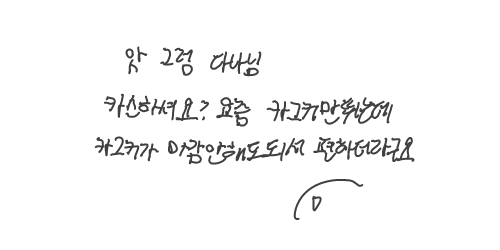 앗 그럼 다나님
카스하셔요? 요즘 카그카만뛰는데
카그카가 마감안해도되서 편하더라구요